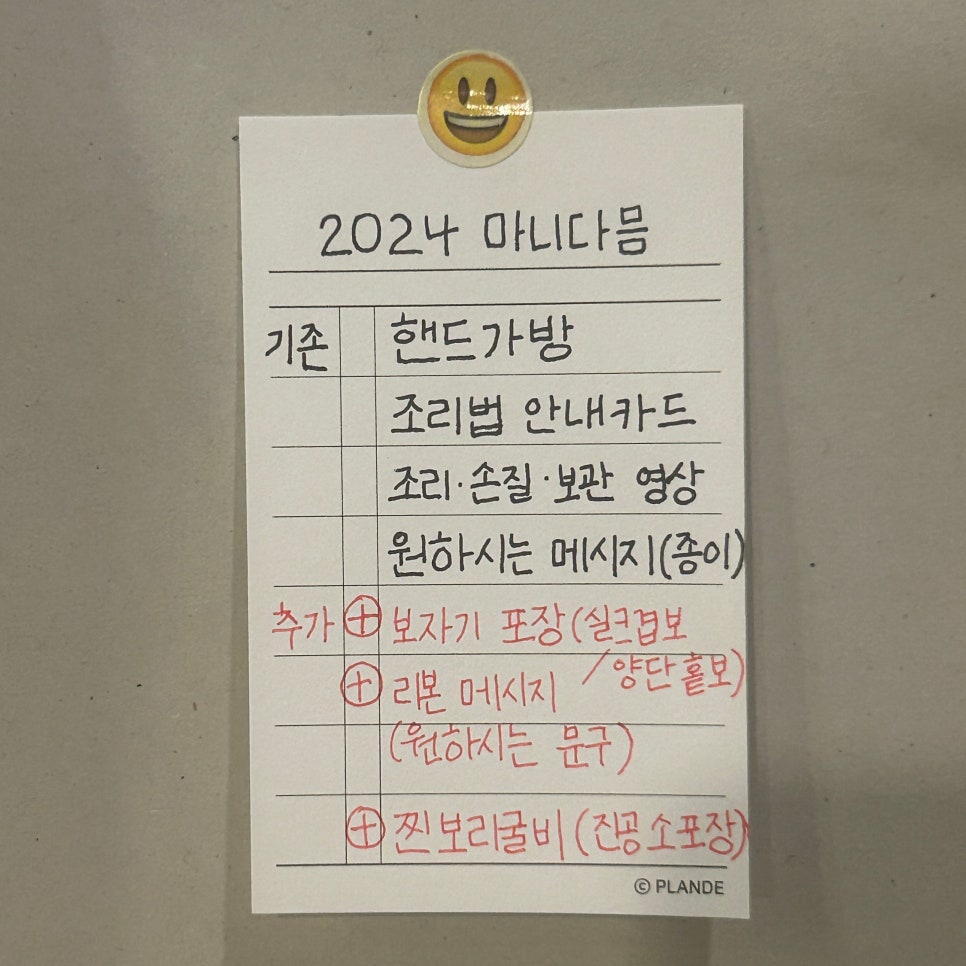 2024 마니다믐
기존 핸드가방
조리법 안내카드
조리·손질·보관 영상
원하시는 메시지(종이)
추가 ⊕ 보자기 포장(실크겹보
/양단홑보)
⊕ 리본 메시지
(원하시는 문구)
⊕ 찐보리굴비(진공소포장)
© PLANDE